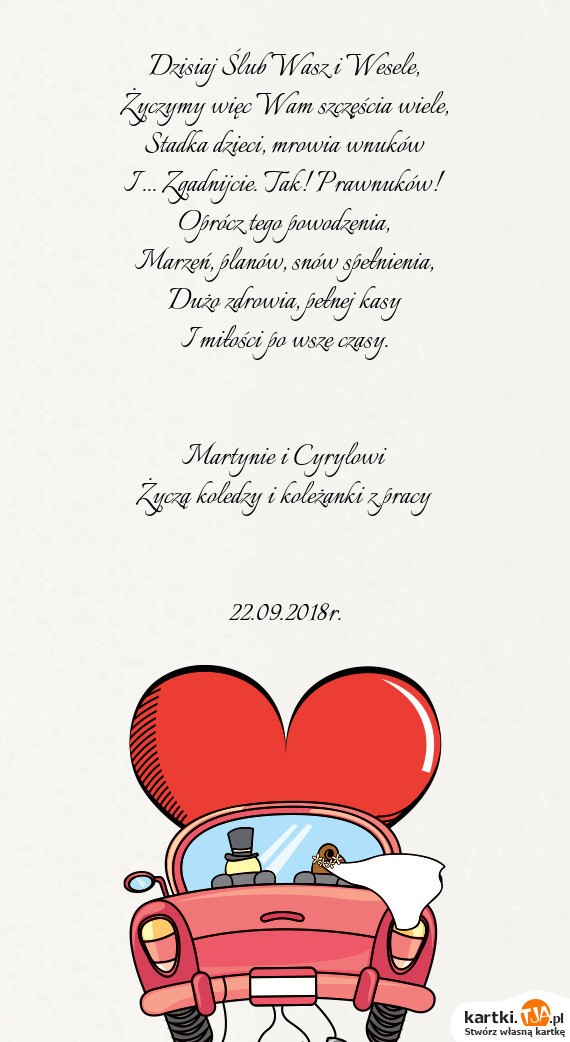 Dzisiaj Ślub Wasz i Wesele,
Życzymy więc Wam szczęścia wiele,
Stadka dzieci, mrowia wnuków
I ... Zgadnijcie. Tak! Prawnuków!
Oprócz tego powodzenia,
Marzeń, planów, snów spełnienia,
Dużo zdrowia, pełnej kasy
I miłości po wsze czasy.
Martynie i Cyrylowi
Życzą koledzy i koleżanki z pracy
22.09.2018r.
kartki.TJA.pl
Stwórz własną kartkę